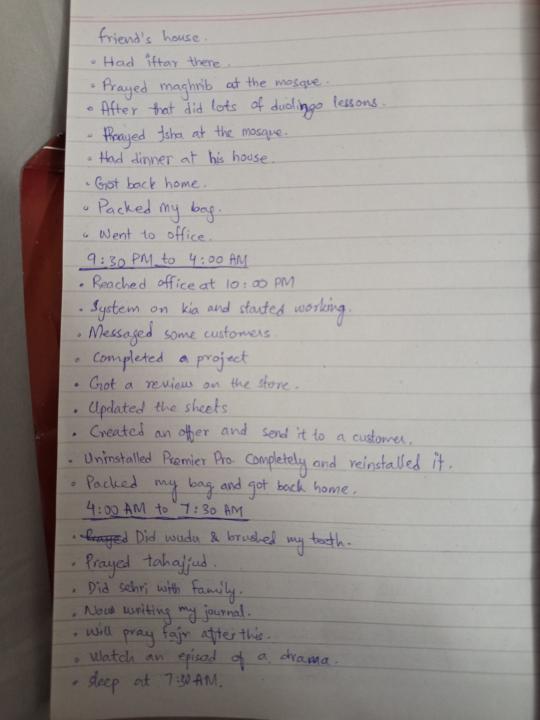 friend's house.
• Had iftar there.
• Prayed maghrib at the mosque.
• After that did lots of duolingo lessons.
• Prayed Isha at the mosque.
• Had dinner at his house.
• Got back home.
• Packed my bag.
• Went to office.
9:30 PM to 4:00 AM
• Reached office at 10:00 PM
• System on kia and started working.
• Messaged some customers.
• Completed a project
• Got a review on the store.
• Updated the sheets
• Created an offer and send it to a customer.
• Uninstalled Premier Pro Completely and reinstalled it.
• Packed my bag and got back home.
4:00 AM to 7:30 AM
• Prayed Did wudu & brushed my teeth.
• Prayed tahajjud.
• Did sehri with family.
• Now writing my journal.
• Will pray fajr after this.
• Watch an episod of a drama.
• Sleep at 7:30 AM.